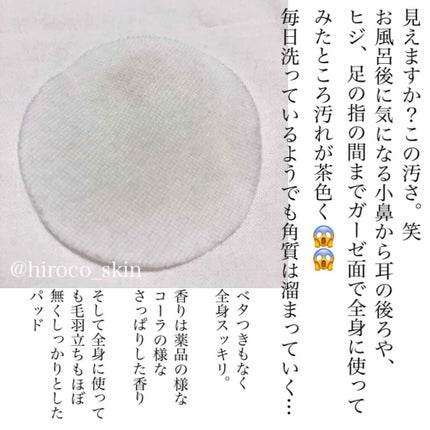 見えますか？この汚さ。笑
お風呂後に気になる小鼻から耳の後ろや、
ヒジ、足の指の間までガーゼ面で全身に使って
みたところ汚れが茶色く😱😱
毎日洗っているようでも角質は溜まっていく…
@hiroco_skin
ベタつきもなく
全身スッキリ。
香りは薬品の様な
コーラの様な
さっぱりした香り
そして全身に使って
も毛羽立ちもほぼ
無くしっかりとした
パッド